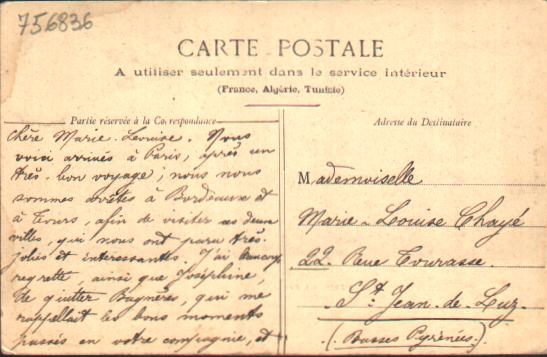 756836
CARTE POSTALE
A utiliser seulement dans le service intérieur
(France, Algérie, Tunisie)
Partie réservée à la Correspondance
Adresse du Destinataire
Chère Marie-Louise. Nous
voici arrivés à Paris, après un
très-bon voyage; nous nous
sommes arrêtés à Bordeaux et
à Tours, afin de visiter ces deux
villes, qui nous ont paru très-
jolies et intéressantes. J'ai beaucoup
regretté, ainsi que Joséphine,
de quitter Bagnères, qui me
rappellait les bons moments
passés en votre compagnie, et
Mademoiselle
Marie-Louise Chayé
22 Rue Tourasse
St Jean-de-Luz
(Basses Pyrénées)